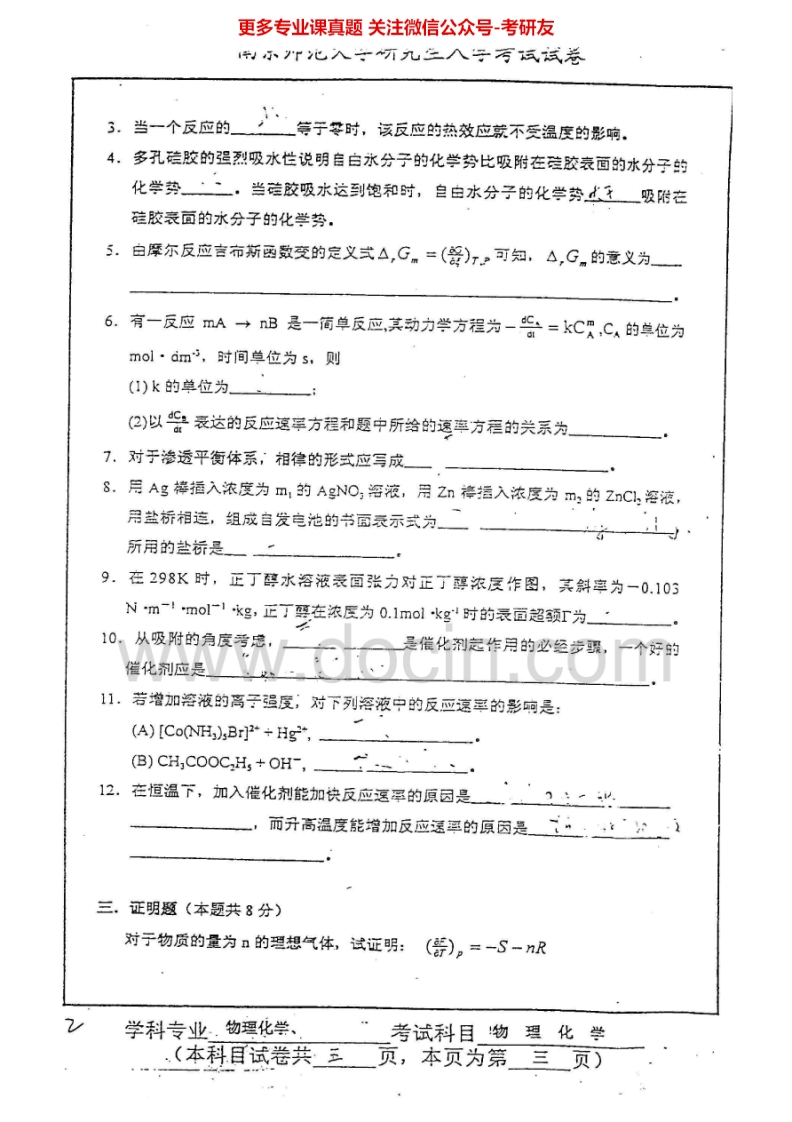 更多专业课真题 关注微信公众号-考研友
南京师范大学研究生入学考试试卷
3．当一个反应的________等于零时，该反应的热效应就不受温度的影响。
4．多孔硅胶的强烈吸水性说明自由水分子的化学势比吸附在硅胶表面的水分子的
化学势______。当硅胶吸水达到饱和时，自由水分子的化学势______吸附在
硅胶表面的水分子的化学势。
5．由摩尔反应吉布斯函数变的定义式ΔᵣGₘ = (∂G/∂ξ)T,P 可知，ΔᵣGₘ的意义为____
________________。
6．有一反应 mA → nB 是一简单反应,其动力学方程为 − dC_A/dt = kC_A^m ,C_A 的单位为
mol·dm⁻³，时间单位为 s，则
(1) k 的单位为________；
(2)以 dC_B/dt 表达的反应速率方程和题中所给的速率方程的关系为________。
7．对于渗透平衡体系，相律的形式应写成________________。
8．用 Ag 棒插入浓度为 m₁ 的 AgNO₃ 溶液，用 Zn 棒插入浓度为 m₂ 的 ZnCl₂ 溶液，
用盐桥相连，组成自发电池的书面表示式为________________，
所用的盐桥是________________。
9．在 298K 时，正丁醇水溶液表面张力对正丁醇浓度作图，其斜率为－0.103
N·m⁻¹·mol⁻¹·kg，正丁醇在浓度为 0.1mol·kg⁻¹ 时的表面超额Γ为________。
10．从吸附的角度考虑，____________是催化剂起作用的必经步骤，一个好的
催化剂应是________________________________。
www.docin.com
11．若增加溶液的离子强度，对下列溶液中的反应速率的影响是：
(A) [Co(NH₃)₅Br]²⁺ + Hg²⁺, ____________。
(B) CH₃COOC₂H₅ + OH⁻, ____________。
12．在恒温下，加入催化剂能加快反应速率的原因是________________
____________，而升高温度能增加反应速率的原因是____________
________________。
三．证明题（本题共 8 分）
对于物质的量为 n 的理想气体，试证明： (∂F/∂T)P = −S − nR
2 学科专业 物理化学、 考试科目 物 理 化 学
（本科目试卷共 三 页，本页为第 三 页）